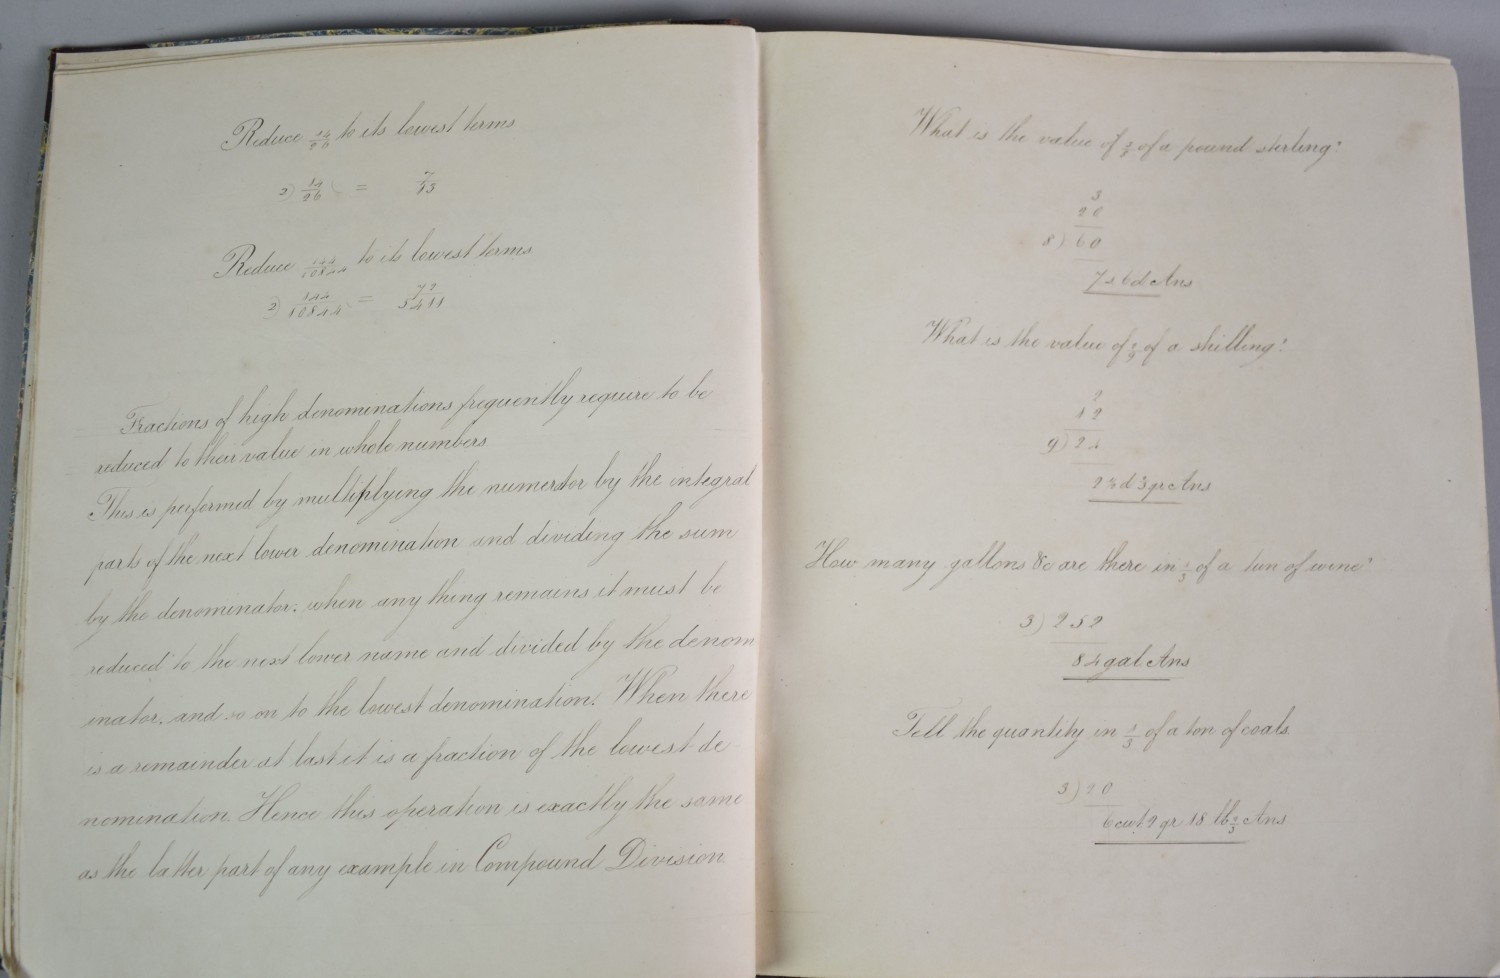 Reduce 14/26 to its lowest terms
2) 14/26 = 7/13
Reduce 144/10844 to its lowest terms
2) 144/10844 = 72/5411
Fractions of high denominations frequently require to be
reduced to their value in whole numbers
This is performed by multiplying the numerator by the integral
parts of the next lower denomination and dividing the sum
by the denominator; when any thing remains it must be
reduced to the next lower name and divided by the denom
inator, and so on to the lowest denomination. When there
is a remainder at last it is a fraction of the lowest de-
nomination. Hence this operation is exactly the same
as the latter part of any example in Compound Division
What is the value of of a pound sterling?
3
20
8) 60
7s 6d Ans
What is the value of 2/9 of a shilling?
2
12
9) 24
Ans
How many gallons &c are there in 1/3 of a tun of wine?
3) 252
84 gal Ans
Tell the quantity in 1/3 of a ton of coals.
3) 20
6 cwt. 2 qr 18 lb 2/3 Ans